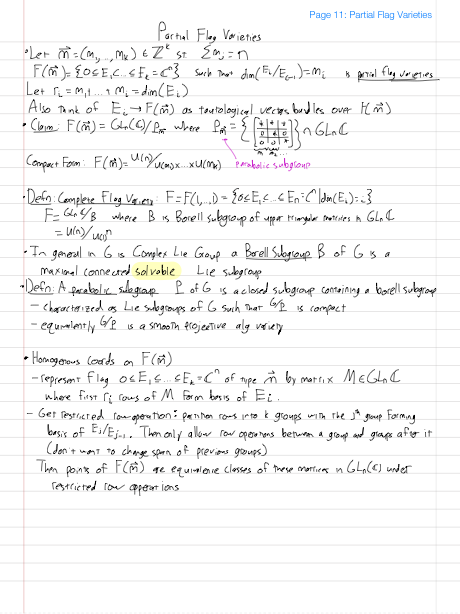 Page 11: Partial Flag Varieties
Partial Flag Varieties
• Let m⃗ = (m₁, ..., mₖ) ∈ ℤᵏ st Σmᵢ = n
F(m⃗) = {0 ≤ E₁ ⊂ ... ≤ Eₖ = ℂⁿ} such that dim(Eᵢ/Eᵢ₋₁) = mᵢ is partial flag varieties
Let rᵢ = m₁ + ... + mᵢ = dim(Eᵢ)
Also think of Eᵢ → F(m⃗) as tautological vector bundles over F(m⃗)
• Claim: F(m⃗) = GLₙ(ℂ)/Pₘ⃗ where Pₘ⃗ = { } ∩ GLₙℂ
Compact Form: F(m⃗) = U(n)/U(m₁)×...×U(mₖ) parabolic subgroup
• Defn: Complete Flag Variety: F = F(1,...,1) = {0 ≤ E₁ ≤ ... ≤ Eₙ = ℂⁿ | dim(Eᵢ) = i}
F = GLₙℂ/B where B is Borell subgroup of upper triangular matrices in GLₙℂ
= U(n)/U(1)ⁿ
• In general in G is Complex Lie Group a Borell Subgroup B of G is a
maximal connected solvable Lie subgroup
• Defn: A parabolic subgroup P of G is a closed subgroup containing a borell subgroup
- characterized as Lie subgroups of G such that G/P is compact
- equivalently G/P is a smooth projective alg variety
• Homogenous Coords on F(m⃗)
- represent Flag 0 ≤ E₁ ≤ ... ≤ Eₖ = ℂⁿ of type m⃗ by matrix M ∈ GLₙℂ
where first rᵢ rows of M form basis of Eᵢ.
- Get restricted row operation: partition rows into k groups with the jᵗʰ group forming
basis of Eⱼ/Eⱼ₋₁. Then only allow row operations between a group and groups after it
(don't want to change span of previous groups)
Then points of F(m⃗) are equivalence classes of these matrices in GLₙ(ℂ) under
restricted row opperations